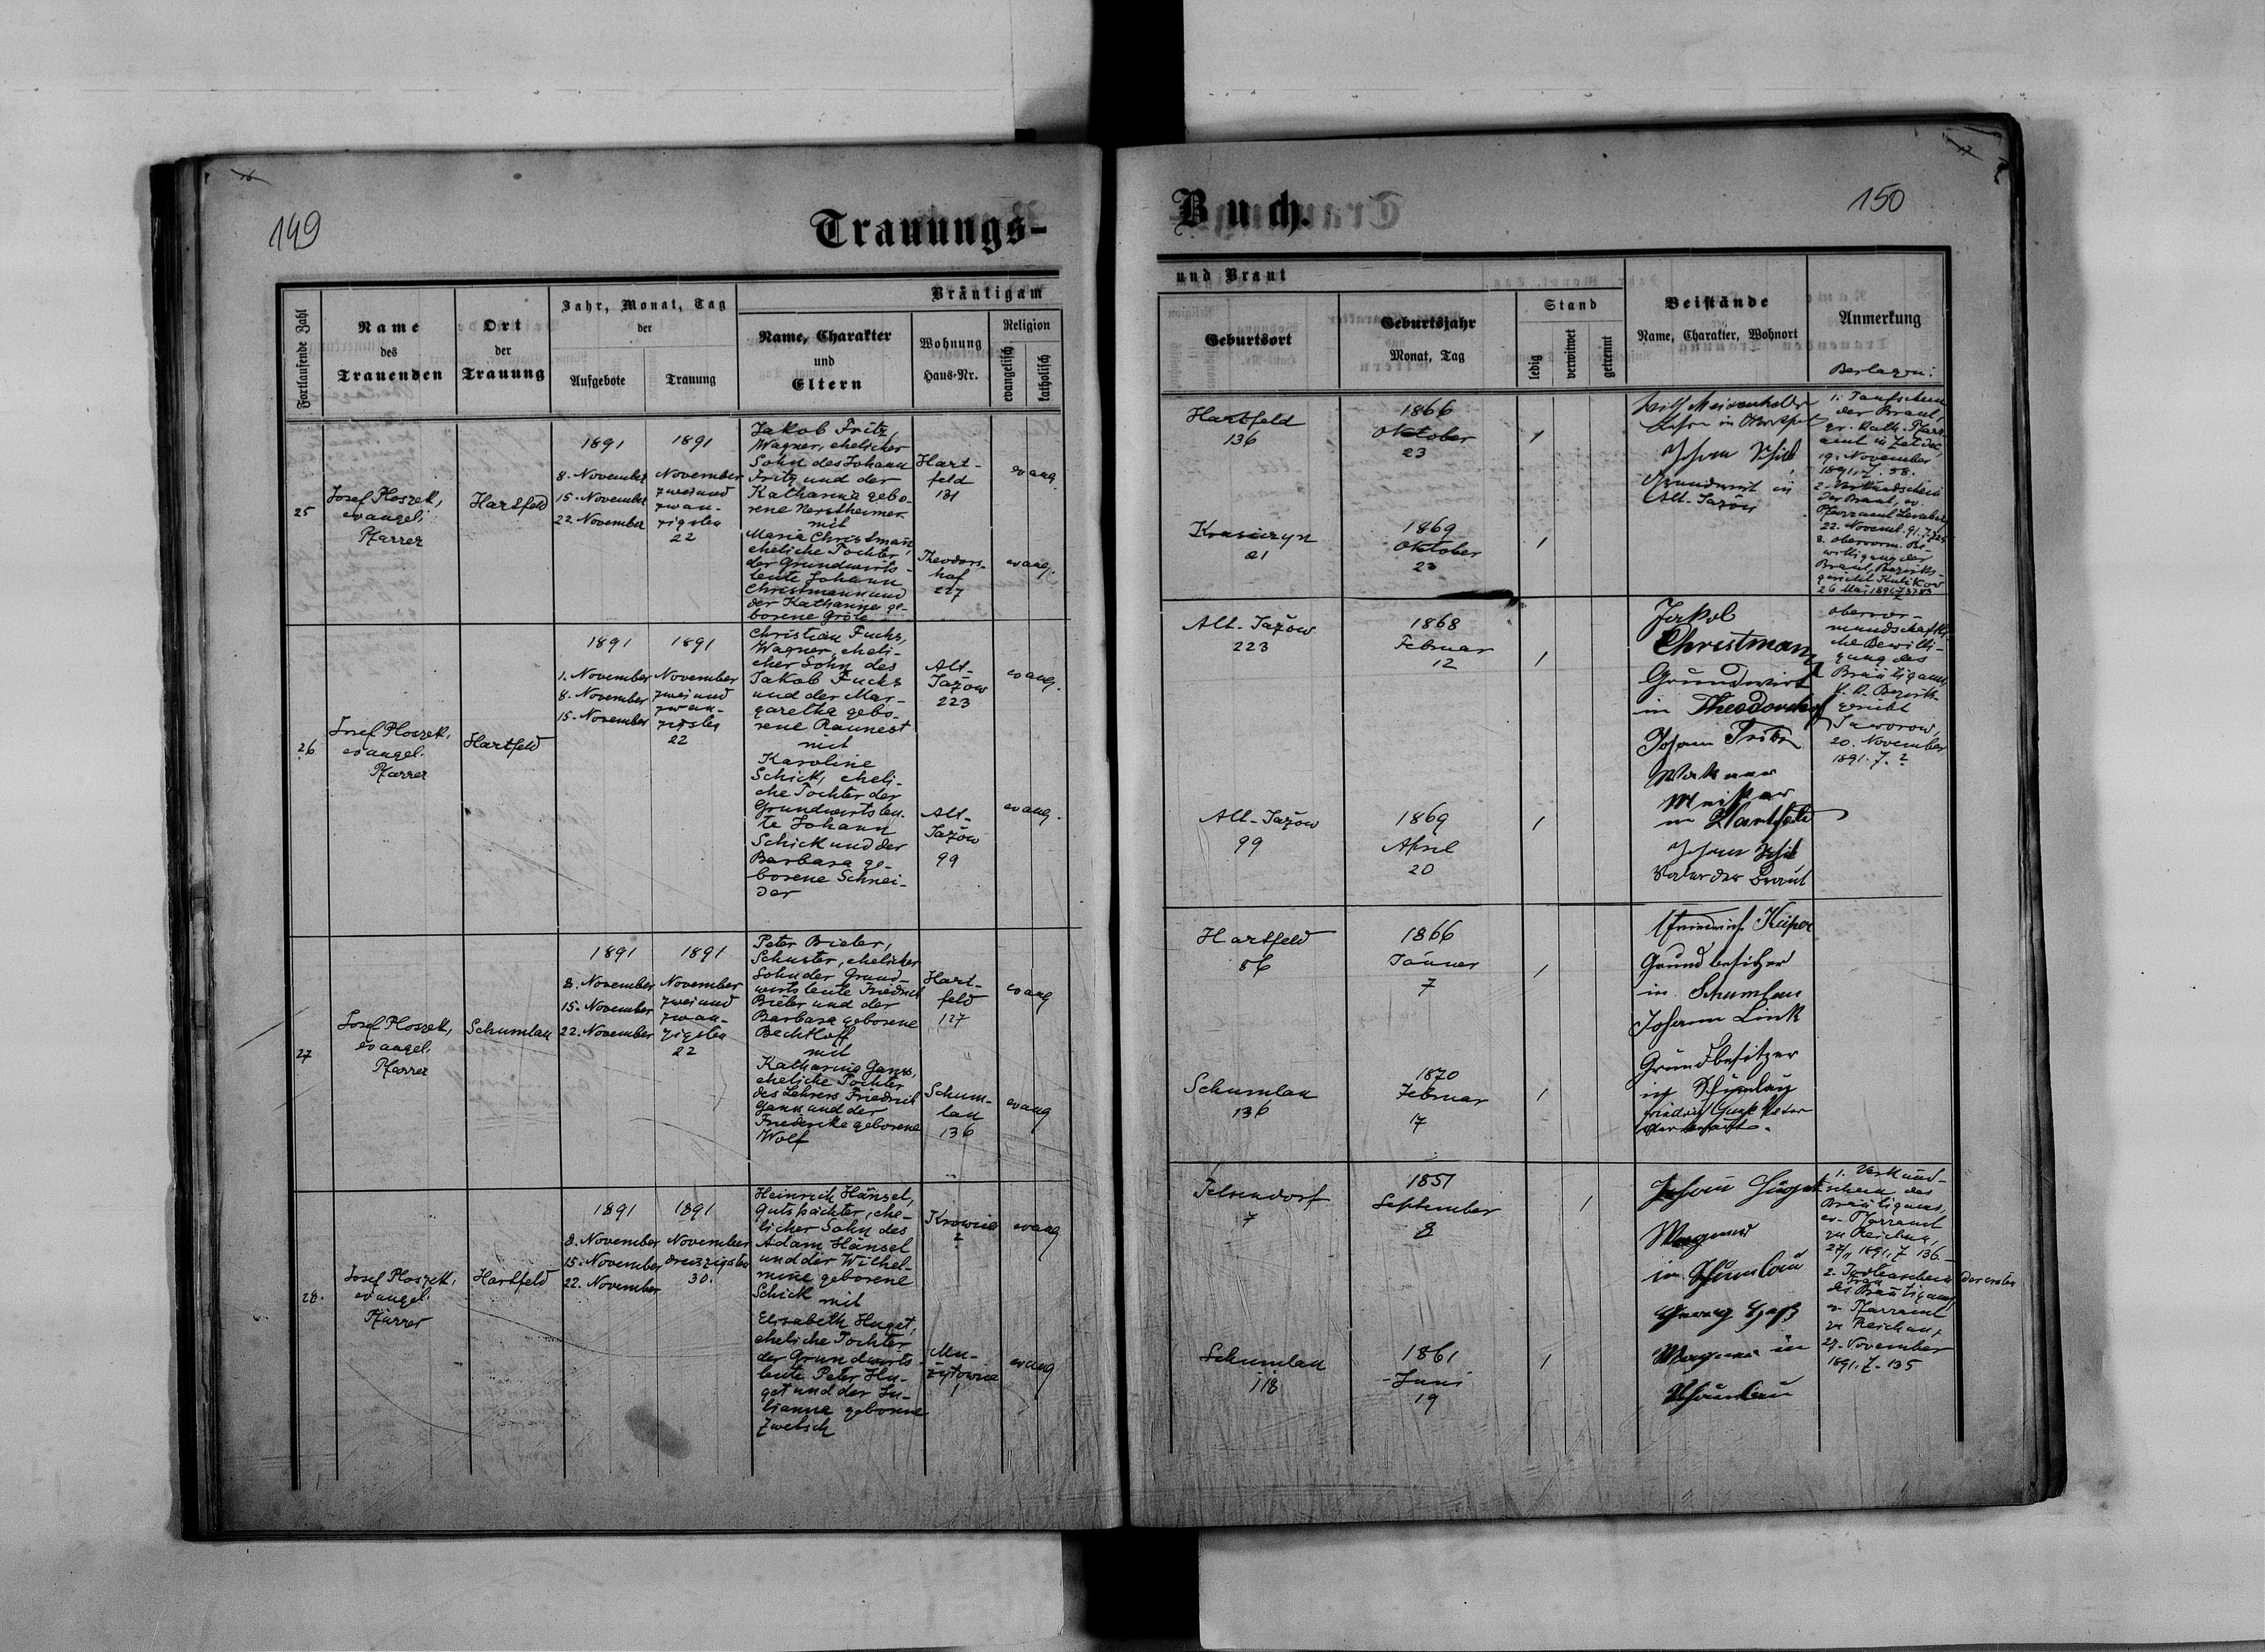 149
Trauungs-
Fortlaufende Zahl
Name
des
Trauenden
Ort
der
Trauung
Jahr, Monat, Tag
der
Aufgebote
Trauung
Bräutigam
Name, Charakter
und
Eltern
Wohnung
Haus-Nr.
Religion
evangelisch
katholisch
25
Josef Ploszek,
evangel.
Pfarrer
Hartfeld
1891
8. November
15. November
22. November
1891
November
zweiund
zwan-
zigsten
22
Jakob Fritz,
Wagner, ehelicher
Sohn des Johann
Fritz und der
Katharina gebo-
rene
mit
Maria Christmann
eheliche Tochter
der Grundwirts-
leute Johann
Christmann und
der Katharina ge-
borene
Hart-
feld
131
evang.
Theodors-
hof
227
evang.
26
Josef Ploszek,
evangel.
Pfarrer
Hartfeld
1891
1. November
8. November
15. November
1891
November
zweiund
zwan-
zigsten
22
Christian Fuchs,
Wagner, eheli-
cher Sohn des
Jakob Fuchs
und der Mar-
garetha gebo-
rene
mit
Karoline
Schick, eheli-
che Tochter der
Grundwirtsleu-
te Johann
Schick und der
Barbara ge-
borene Schnei-
der
Alt-
Jažow
223
evang.
Alt-
Jažow
99
evang.
27
Josef Ploszek,
evangel.
Pfarrer
Schumlau
1891
8. November
15. November
22. November
1891
November
zweiund
zwan-
zigsten
22
Peter Bieler,
Schuster, ehelicher
Sohn der Grund-
wirtsleute Friedrich
Bieler und der
Barbara geborene
Bechtloff
mit
Katharina Ganss,
eheliche Tochter
des Lehrers Friedrich
Ganss und der
Friederike geborene
Wolf
Hart-
feld
127
evang
Schum-
lau
136
evang
28.
Josef Ploszek,
evangel.
Pfarrer
Hartfeld
1891
8. November
15. November
22. November
1891
November
dreiszigsten
30.
Heinrich Hänsel,
Gutspächter, ehe-
licher Sohn des
Adam Hänsel
und der Wilhel-
mine geborene
Schick mit
Elisabeth Huget,
eheliche Tochter
der Grundwirts-
leute Peter Hu-
get und der Ju-
lianna geborene
Zwetsch
Krowica
2
evang
Mu-
żyłowice
1
evang
150
Buch.
und Braut
Geburtsort
Geburtsjahr
Monat, Tag
Stand
ledig
verwitwet
getrennt
Beistände
Name, Charakter, Wohnort
Anmerkung
Beilagen:
Hartfeld
136
1866
Oktober
23
Johann Schick
Grundwirt in
Alt-Jažow
1. Taufschein
der Braut,
gr. kath. Pfarr-
amt in
19. November
1891. Z. 58.
2. Verkündschein
der Braut, ev.
Pfarramt Lemberg
22. Novemb. 91.
3. obervorm. Be-
willigung der
Braut, Bezirks-
gericht Kulikow
26 Mai 1891
Krasiczyn
21
1869
Oktober
23
Alt-Jažow
223
1868
Februar
12
Jakob
Christmann
Grundwirt
in Theodorshof
Johann Fritz
Meister
in Hartfeld
Johann Schick
Vater der Braut
obervor-
mundschaftli-
che Bewilli-
gung des
Bräutigams,
k. k. Bezirks-
gericht
Jaworow,
20. November
1891. Z. ?
Alt-Jažow
99
1869
April
20
Hartfeld
56
1866
Jänner
7
Friedrich Kuper
Grundbesitzer
in Schumlau
Johann Link
Grundbesitzer
in Schumlau
Friedrich Ganß Vater
der Braut.
Schumlau
136
1870
Februar
17
7
1851
September
8
Johann Huget
Wagner
in Schumlau
Georg Haß
Wagner in
Schumlau
1. Verkünd-
schein des
Bräutigams,
ev. Pfarramt
zu Reichau,
27/11 1891, Z 136.
2. Todtenschein der ersten
Frau
des Bräutigams
ev. Pfarramt
zu Reichau,
27. November
1891. Z. 135
Schumlau
118
1861
Juni
19